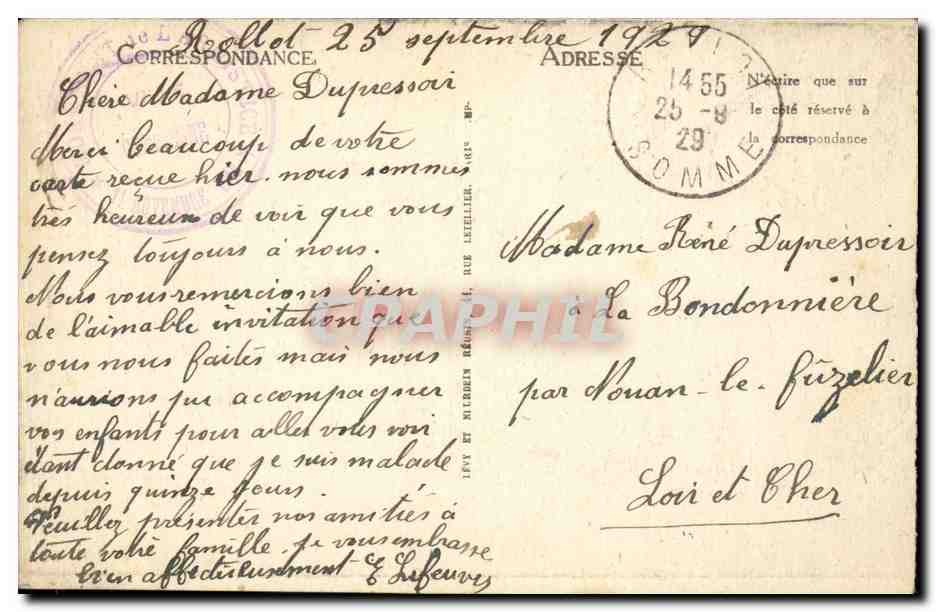 Rollot 25 septembre 1929
CORRESPONDANCE
ADRESSE
Chère Madame Dupressoir
Merci beaucoup de votre
carte reçue hier. nous sommes
très heureux de voir que vous
pensez toujours à nous.
Nous vous remercions bien
de l'aimable invitation que
vous nous faites mais nous
n'aurions pu accompagner
vos enfants pour aller vous voir
étant donné que je suis malade
depuis quinze jours.
Veuillez présenter nos amitiés à
toute votre famille. je vous embrasse
bien affectueusement
LÉVY ET NEURDEIN RÉUNIS, 44, RUE LETELLIER,
14 55
25 - 9
29
SOMME
N'écrire que sur
le côté réservé à
la correspondance
Madame René Dupressoir
à La Bondonnière
par Nouan-le-fuzelier
Loir et Cher
CPAPHIL